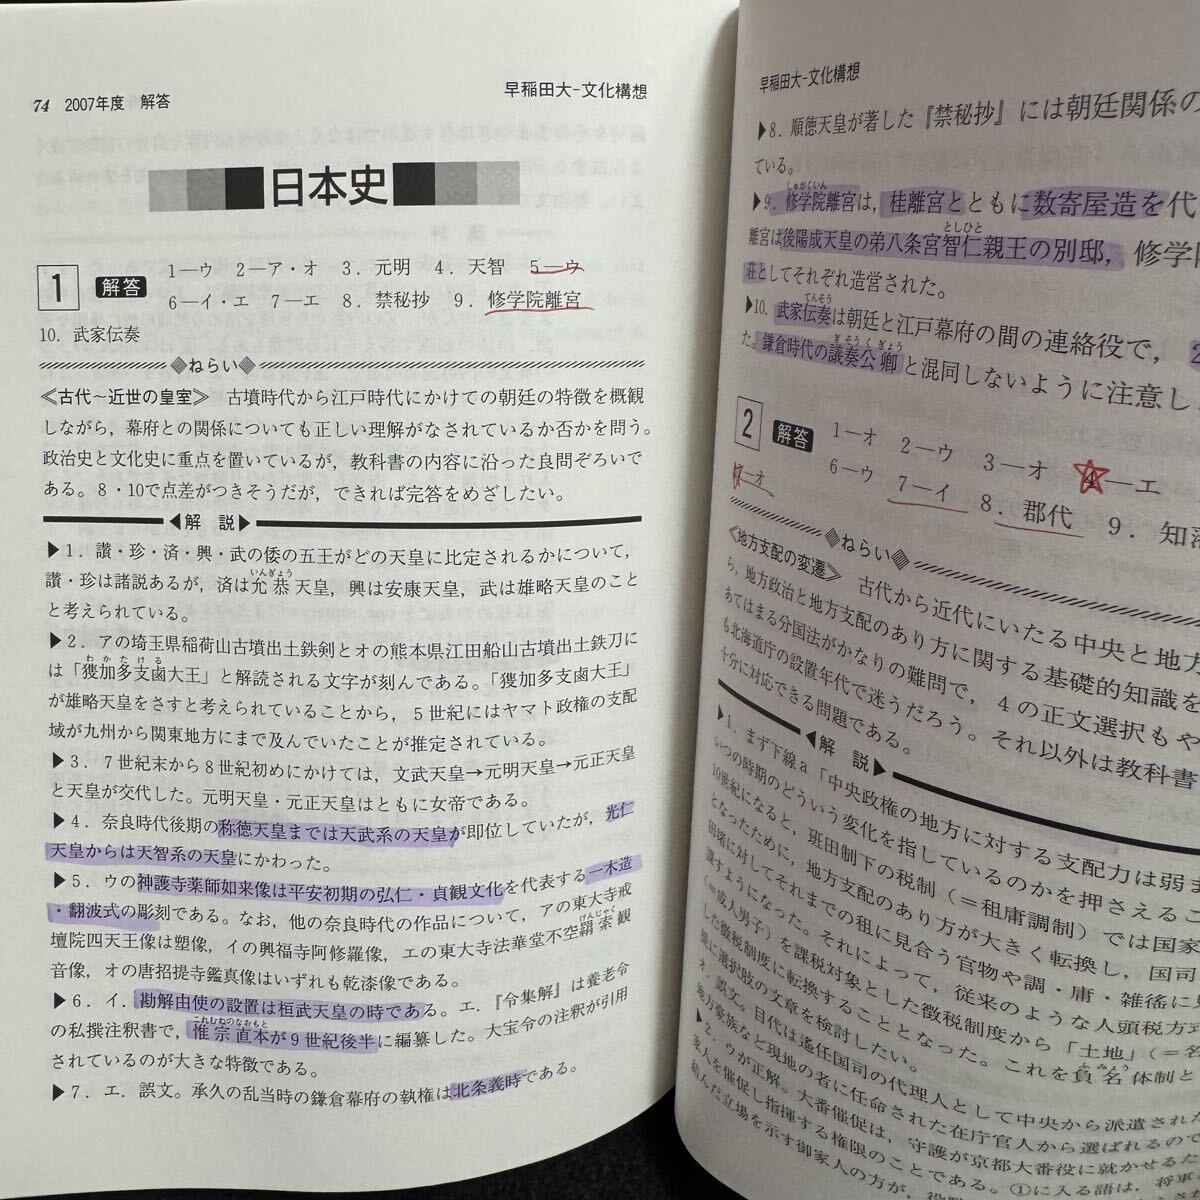 74 2007年度 解答
早稲田大-文化構想
日本史
1 解答 1―ウ 2―ア・オ 3．元明 4．天智 5―ウ
6―イ・エ 7―エ 8．禁秘抄 9．修学院離宮
10．武家伝奏
◆ねらい◆
≪古代～近世の皇室≫ 古墳時代から江戸時代にかけての朝廷の特徴を概観
しながら，幕府との関係についても正しい理解がなされているか否かを問う。
政治史と文化史に重点を置いているが，教科書の内容に沿った良問ぞろいで
ある。8・10で点差がつきそうだが，できれば完答をめざしたい。
◀解 説▶
▶1．讃・珍・済・興・武の倭の五王がどの天皇に比定されるかについて，
いんぎょう
讃・珍は諸説あるが，済は允恭天皇，興は安康天皇，武は雄略天皇のこと
と考えられている。
▶2．アの埼玉県稲荷山古墳出土鉄剣とオの熊本県江田船山古墳出土鉄刀に
わかたける
は「獲加多支鹵大王」と解読される文字が刻んである。「獲加多支鹵大王」
が雄略天皇をさすと考えられていることから，5世紀にはヤマト政権の支配
域が九州から関東地方にまで及んでいたことが推定されている。
▶3．7世紀末から8世紀初めにかけては，文武天皇→元明天皇→元正天皇
と天皇が交代した。元明天皇・元正天皇はともに女帝である。
▶4．奈良時代後期の称徳天皇までは天武系の天皇が即位していたが，光仁
天皇からは天智系の天皇にかわった。
▶5．ウの神護寺薬師如来像は平安初期の弘仁・貞観文化を代表する一木造
・翻波式の彫刻である。なお，他の奈良時代の作品について，アの東大寺戒
けんじゃく
壇院四天王像は塑像，イの興福寺阿修羅像，エの東大寺法華堂不空羂索観
音像，オの唐招提寺鑑真像はいずれも乾漆像である。
▶6．イ．勘解由使の設置は桓武天皇の時である。エ．『令集解』は養老令
これむねのなおもと
の私撰注釈書で，惟宗直本が9世紀後半に編纂した。大宝令の注釈が引用
されているのが大きな特徴である。
▶7．エ．誤文。承久の乱当時の鎌倉幕府の執権は北条義時である。
早稲田大-文化構想
▶8．順徳天皇が著した『禁秘抄』には朝廷関係の
ている。
しゅがくいん
▶9．修学院離宮は，桂離宮とともに数寄屋造を代
としひと
離宮は後陽成天皇の弟八条宮智仁親王の別邸，修学
荘としてそれぞれ造営された。
てんそう
▶10．武家伝奏は朝廷と江戸幕府の間の連絡役で，
ぎそうくぎょう
た。鎌倉時代の議奏公卿と混同しないように注意し
2 解答 1―オ 2―ウ 3―オ 4―エ
―オ
6―ウ 7―イ 8．郡代 9．知
◆ねらい◆
≪地方支配の変遷≫ 古代から近代にいたる中央と地方
ら，地方政治と地方支配のあり方に関する基礎的知識を
あてはまる分国法がかなりの難問で，4の正文選択もや
も北海道庁の設置年代で迷うだろう。それ以外は教科書
十分に対応できる問題である。
◀解 説▶
▶1．まず下線a「中央政権の地方に対する支配力は弱ま
いつの時期のどういう変化を指しているのかを押さえるこ
10世紀になると，班田制下の税制（＝租庸調制）では国家
となったために，地方支配のあり方が大きく転換し，国司
田堵に対してそれまでの租に見合う官物や調・庸・雑徭に
課すようになった。それによって，従来のような人頭税方式
（＝成人男子）を課税対象とした徴税制度から「土地」（＝名
ふみょう
した徴税制度に転換することとなった。これを負名体制と
に選択肢の文章を検討したい。
オ．誤文。目代は遙任国司の代理人として中央から派遣された
地方豪族など現地の者に任命された在庁官人から選ばれるので
▶2．ウが正解。大番催促は，守護が京都大番役に就かせるた
家人を催促し指揮する権限のことである。①に入る語は，将軍
結んだ立場を示す御家人の方が，